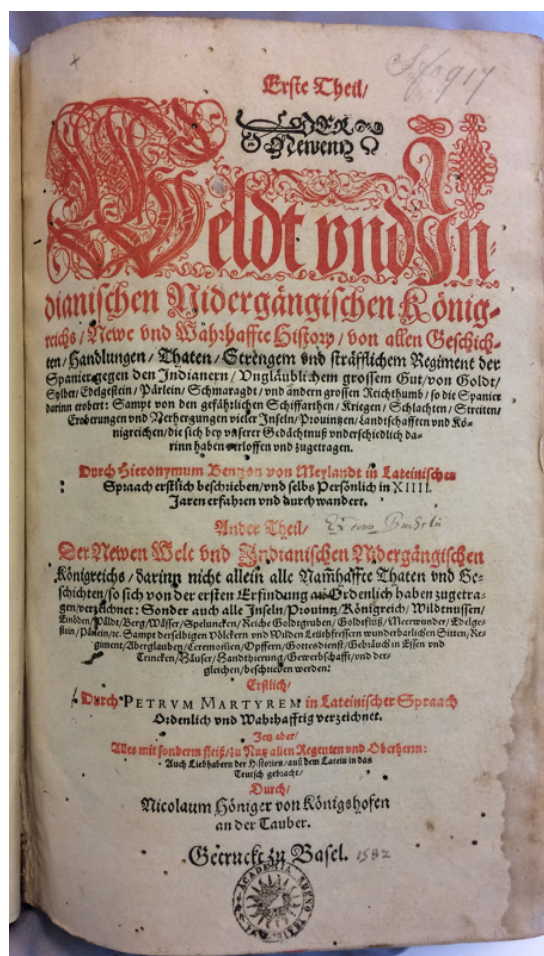 Erste Theil/
Sfo 917
Der
Newenn
Weldt vnd In-
dianischen Nidergängischen König-
reichs/ Newe vnd Wahrhaffte History/ von allen Geschich-
ten/ Handlungen/ Thaten/ Strengem vnd sträfflichem Regiment der
Spanier gegen den Indianern/ Vngläublichem grossem Gut/ von Goldt/
Sylber/ Edelgestein/ Pärlein/ Schmaragdt/ vnd andern grossen Reichthumb/ so die Spanier
darinn erobert: Sampt von den gefährlichen Schiffarthen/ Kriegen/ Schlachten/ Streiten/
Eroberungen vnd Verhergungen vieler Inseln/ Prouintzen/ Landtschafften vnd Kö-
nigreichen/ die sich bey vnserer Gedächtnuß vnderschiedlich da-
rinn haben verloffen vnd zugetragen.
Durch Hieronymum Bentzon von Meylandt in Lateinischer
Spraach erstlich beschrieben/ vnd selbs Persönlich in XIIII.
Jaren erfahren vnd durchwandert.
Ander Theil/
Der Newen Welt vnd Indianischen Nidergängischen
Königreichs/ darinn nicht allein alle Namhaffte Thaten vnd Ge-
schichten/ so sich von der ersten Erfindung an Ordenlich haben zugetra-
gen/ verzeichnet: Sonder auch alle Inseln/ Prouintz/ Königreich/ Wildtnussen/
Einöden/ Wäldt/ Berg/ Wässer/ Speluncken/ Reiche Goldtgruben/ Goldtflüß/ Meerwunder/ Edelge-
stein/ Pärlein/ ec. Sampt derselbigen Völckern vnd Wilden Leuthfressern wunderbarlichen Sitten/ Re-
giment/ Aberglauben/ Ceremonien/ Opffern/ Gottesdienst/ Gebräuch in Essen vnd
Trincken/ Häuser/ Handthierung/ Gewerbschafft/ vnd der-
gleichen/ beschrieben werden:
Erstlich/
Durch PETRVM MARTYREM in Lateinischer Spraach
Ordenlich vnd Wahrhafftig verzeichnet.
Jetz aber/
Alles mit sonderm fleiß/ zu Nutz allen Regenten vnd Oberherrn:
Auch Liebhabern der Historien/ auß dem Latein in das
Teutsch gebracht/
Durch/
Nicolaum Höniger von Königshofen
an der Tauber.
Getruckt zu Basel. 1582
ACADEMIA